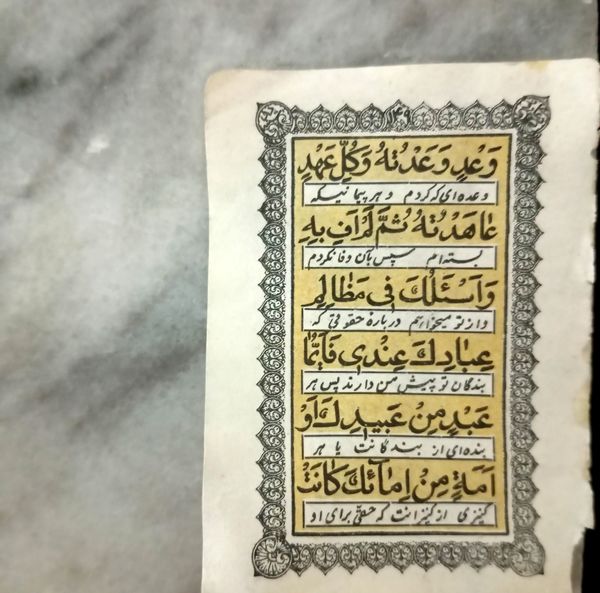 ۱۴۹
وَعْدٍ وَعَدْتُهُ وَكُلِّ عَهْدٍ
وعده‌ای که کردم و هر پیمانیکه
عَاهَدْتُهُ ثُمَّ لَمْ اَفِ بِهِ
بسته‌ام سپس بآن وفا نکردم
وَاَسْئَلُكَ فِي مَظَالِمِ
و از تو میخواهم درباره حقوقی که
عِبَادِكَ عِنْدِي فَاَيُّمَا
بندگان تو پیش من دارند پس هر
عَبْدٍ مِنْ عَبِيدِكَ اَوْ
بنده‌ای از بندگانت یا هر
اَمَةٍ مِنْ اِمَائِكَ كَانَتْ
کنیزی از کنیزانت که حقی برای او